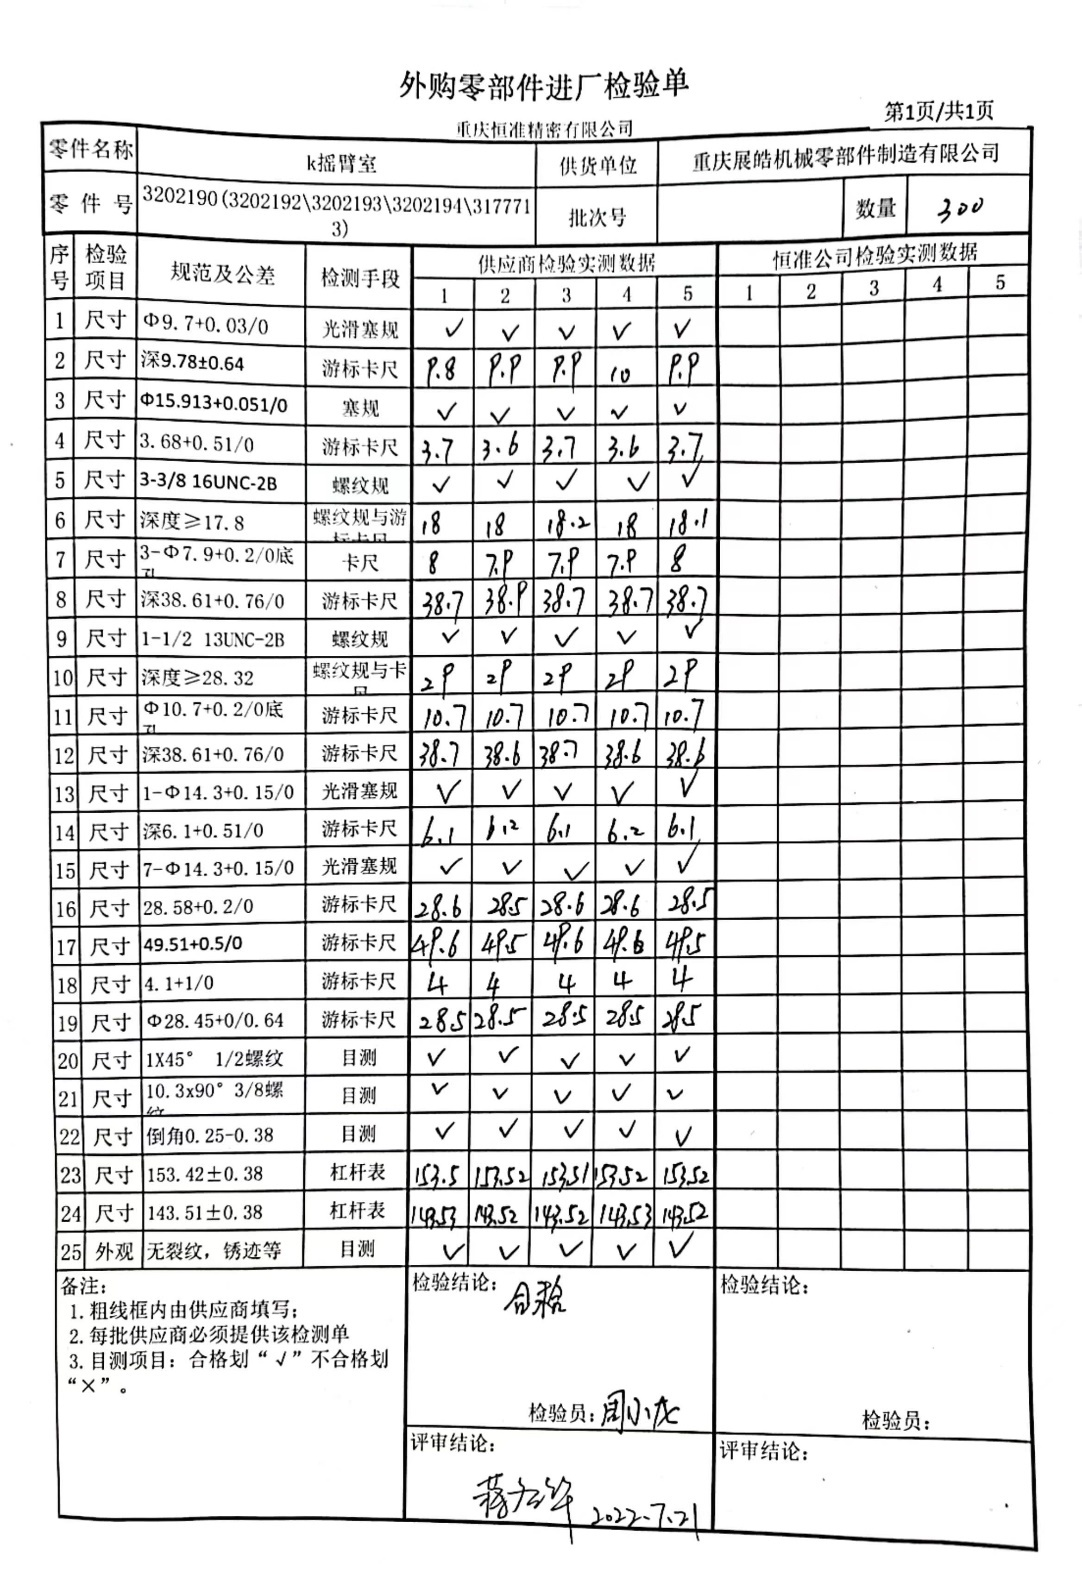 外购零部件进厂检验单
第1页/共1页
重庆恒准精密有限公司
零件名称 k摇臂室 供货单位 重庆展皓机械零部件制造有限公司
零件号 3202190(3202192\3202193\3202194\3177713) 批次号 数量 300
序号 检验项目 规范及公差 检测手段 供应商检验实测数据 恒准公司检验实测数据
1 2 3 4 5 1 2 3 4 5
1 尺寸 Φ9.7+0.03/0 光滑塞规 ✓ ✓ ✓ ✓ ✓
2 尺寸 深9.78±0.64 游标卡尺 9.8 9.9 9.9 10 9.9
3 尺寸 Φ15.913+0.051/0 塞规 ✓ ✓ ✓ ✓ ✓
4 尺寸 3.68+0.51/0 游标卡尺 3.7 3.6 3.7 3.6 3.7
5 尺寸 3-3/8 16UNC-2B 螺纹规 ✓ ✓ ✓ ✓ ✓
6 尺寸 深度≥17.8 螺纹规与游标卡尺 18 18 18.2 18 18.1
7 尺寸 3-Φ7.9+0.2/0底孔 卡尺 8 7.9 7.9 7.9 8
8 尺寸 深38.61+0.76/0 游标卡尺 38.7 38.9 38.7 38.7 38.7
9 尺寸 1-1/2 13UNC-2B 螺纹规 ✓ ✓ ✓ ✓ ✓
10 尺寸 深度≥28.32 螺纹规与卡尺 29 29 29 29 29
11 尺寸 Φ10.7+0.2/0底孔 游标卡尺 10.7 10.7 10.7 10.7 10.7
12 尺寸 深38.61+0.76/0 游标卡尺 38.7 38.6 38.7 38.6 38.6
13 尺寸 1-Φ14.3+0.15/0 光滑塞规 ✓ ✓ ✓ ✓ ✓
14 尺寸 深6.1+0.51/0 游标卡尺 6.1 6.2 6.1 6.2 6.1
15 尺寸 7-Φ14.3+0.15/0 光滑塞规 ✓ ✓ ✓ ✓ ✓
16 尺寸 28.58+0.2/0 游标卡尺 28.6 28.5 28.6 28.6 28.5
17 尺寸 49.51+0.5/0 游标卡尺 49.6 49.5 49.6 49.6 49.5
18 尺寸 4.1+1/0 游标卡尺 4 4 4 4 4
19 尺寸 Φ28.45+0/0.64 游标卡尺 28.5 28.5 28.5 28.5 28.5
20 尺寸 1X45° 1/2螺纹 目测 ✓ ✓ ✓ ✓ ✓
21 尺寸 10.3x90°3/8螺纹 目测 ✓ ✓ ✓ ✓ ✓
22 尺寸 倒角0.25-0.38 目测 ✓ ✓ ✓ ✓ ✓
23 尺寸 153.42±0.38 杠杆表 153.5 153.52 153.51 153.52 153.52
24 尺寸 143.51±0.38 杠杆表 143.53 143.52 143.52 143.53 143.52
25 外观 无裂纹，锈迹等 目测 ✓ ✓ ✓ ✓ ✓
备注：
1.粗线框内由供应商填写；
2.每批供应商必须提供该检测单
3.目测项目：合格划“√”不合格划
“×”。
检验结论： 合格
检验员：周小龙
评审结论：
2022.7.21
检验结论：
检验员：
评审结论：